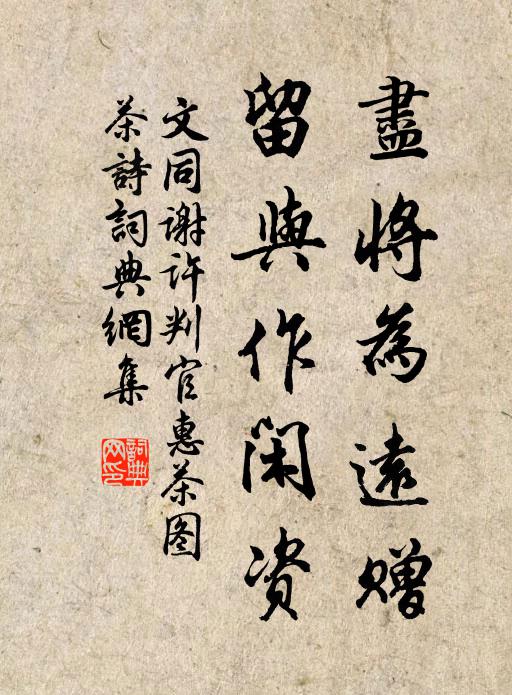 盡將為遠贈
留與作閑資
文同謝許判官惠茶图
茶詩詞典網集
詞典网印